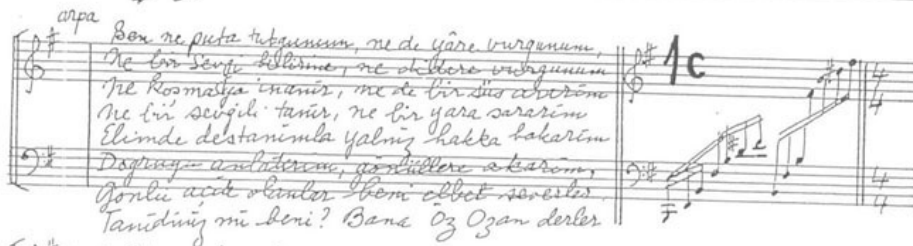 arpa
Ben ne puta tutgunum, ne de yâre vurgunum,
Ne bir sevgi bilirim, ne dildere vurgunum
Ne kosmalja inanır, ne de bir süs ararım
Ne bir sevgili tanır, ne bir yara sararım
Elimde destanımla yalnız hakka bakarım
Doğruyu anlatırım, gönüllere akarım,
Gönlü açık olanlar beni elbet severler
Tanıdınız mı beni? Bana Öz Ozan derler
1c
4
4
4
4